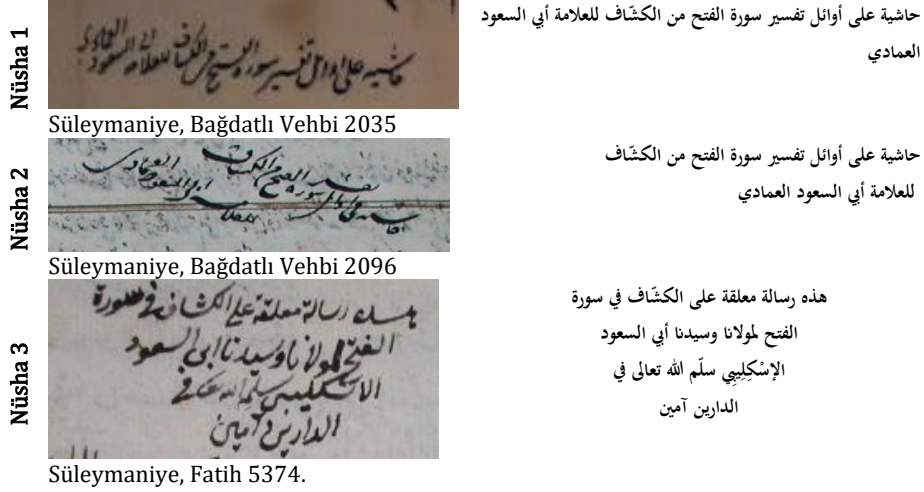 Nüsha 1
حاشية على أوائل تفسير سورة الفتح من الكشّاف للعلامة أبي السعود
العمادي
حاشيه على اوائل تفسير سوره الفتح من الكشاف للعلامه ابى السعود العمادى
Süleymaniye, Bağdatlı Vehbi 2035
Nüsha 2
حاشية على أوائل تفسير سورة الفتح من الكشّاف
للعلامة أبي السعود العمادي
تفسير سوره الفتح من الكشاف
للعلامه ابى السعود العمادى
Süleymaniye, Bağdatlı Vehbi 2096
Nüsha 3
هذه رسالة معلقة على الكشاف في سورة
الفتح لمولانا وسيدنا ابى السعود
الاسكليبى سلم الله تعالى في
الدارين آمين
هذه رسالة معلقة على الكشّاف في سورة
الفتح لمولانا وسيدنا أبي السعود
الإسْكِلِيبِي سلّم الله تعالى في
الدارين آمين
Süleymaniye, Fatih 5374.